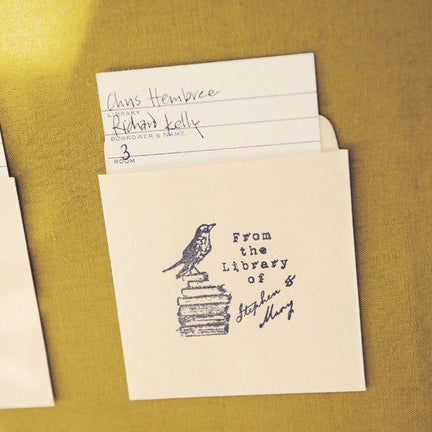 Chris Hembree
LIBRARY
Richard Kelly
BORROWER'S NAME
3
ROOM
From
the
Library
of
Stephen &
Mary